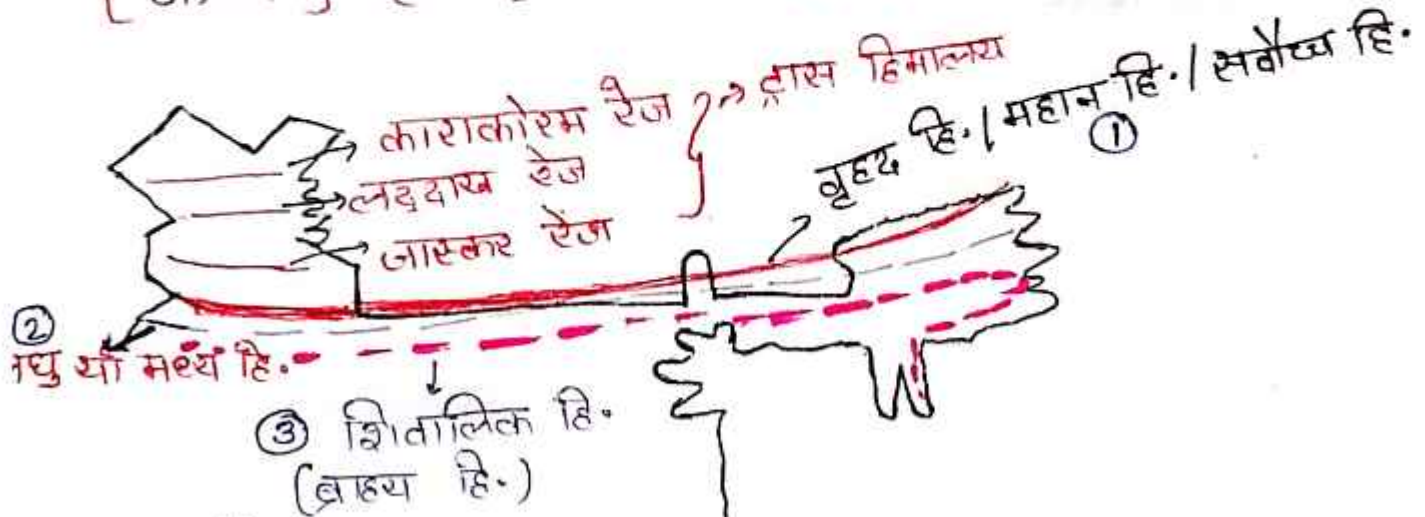 काराकोरम रेंज
लद्दाख रेंज
जास्कर रेंज
ट्रास हिमालय
वृहद हि. / महान हि. / सर्वोच्च हि.
①
②
घु या मध्य हि.
③ शिवालिक हि.
(ब्राहय हि.)